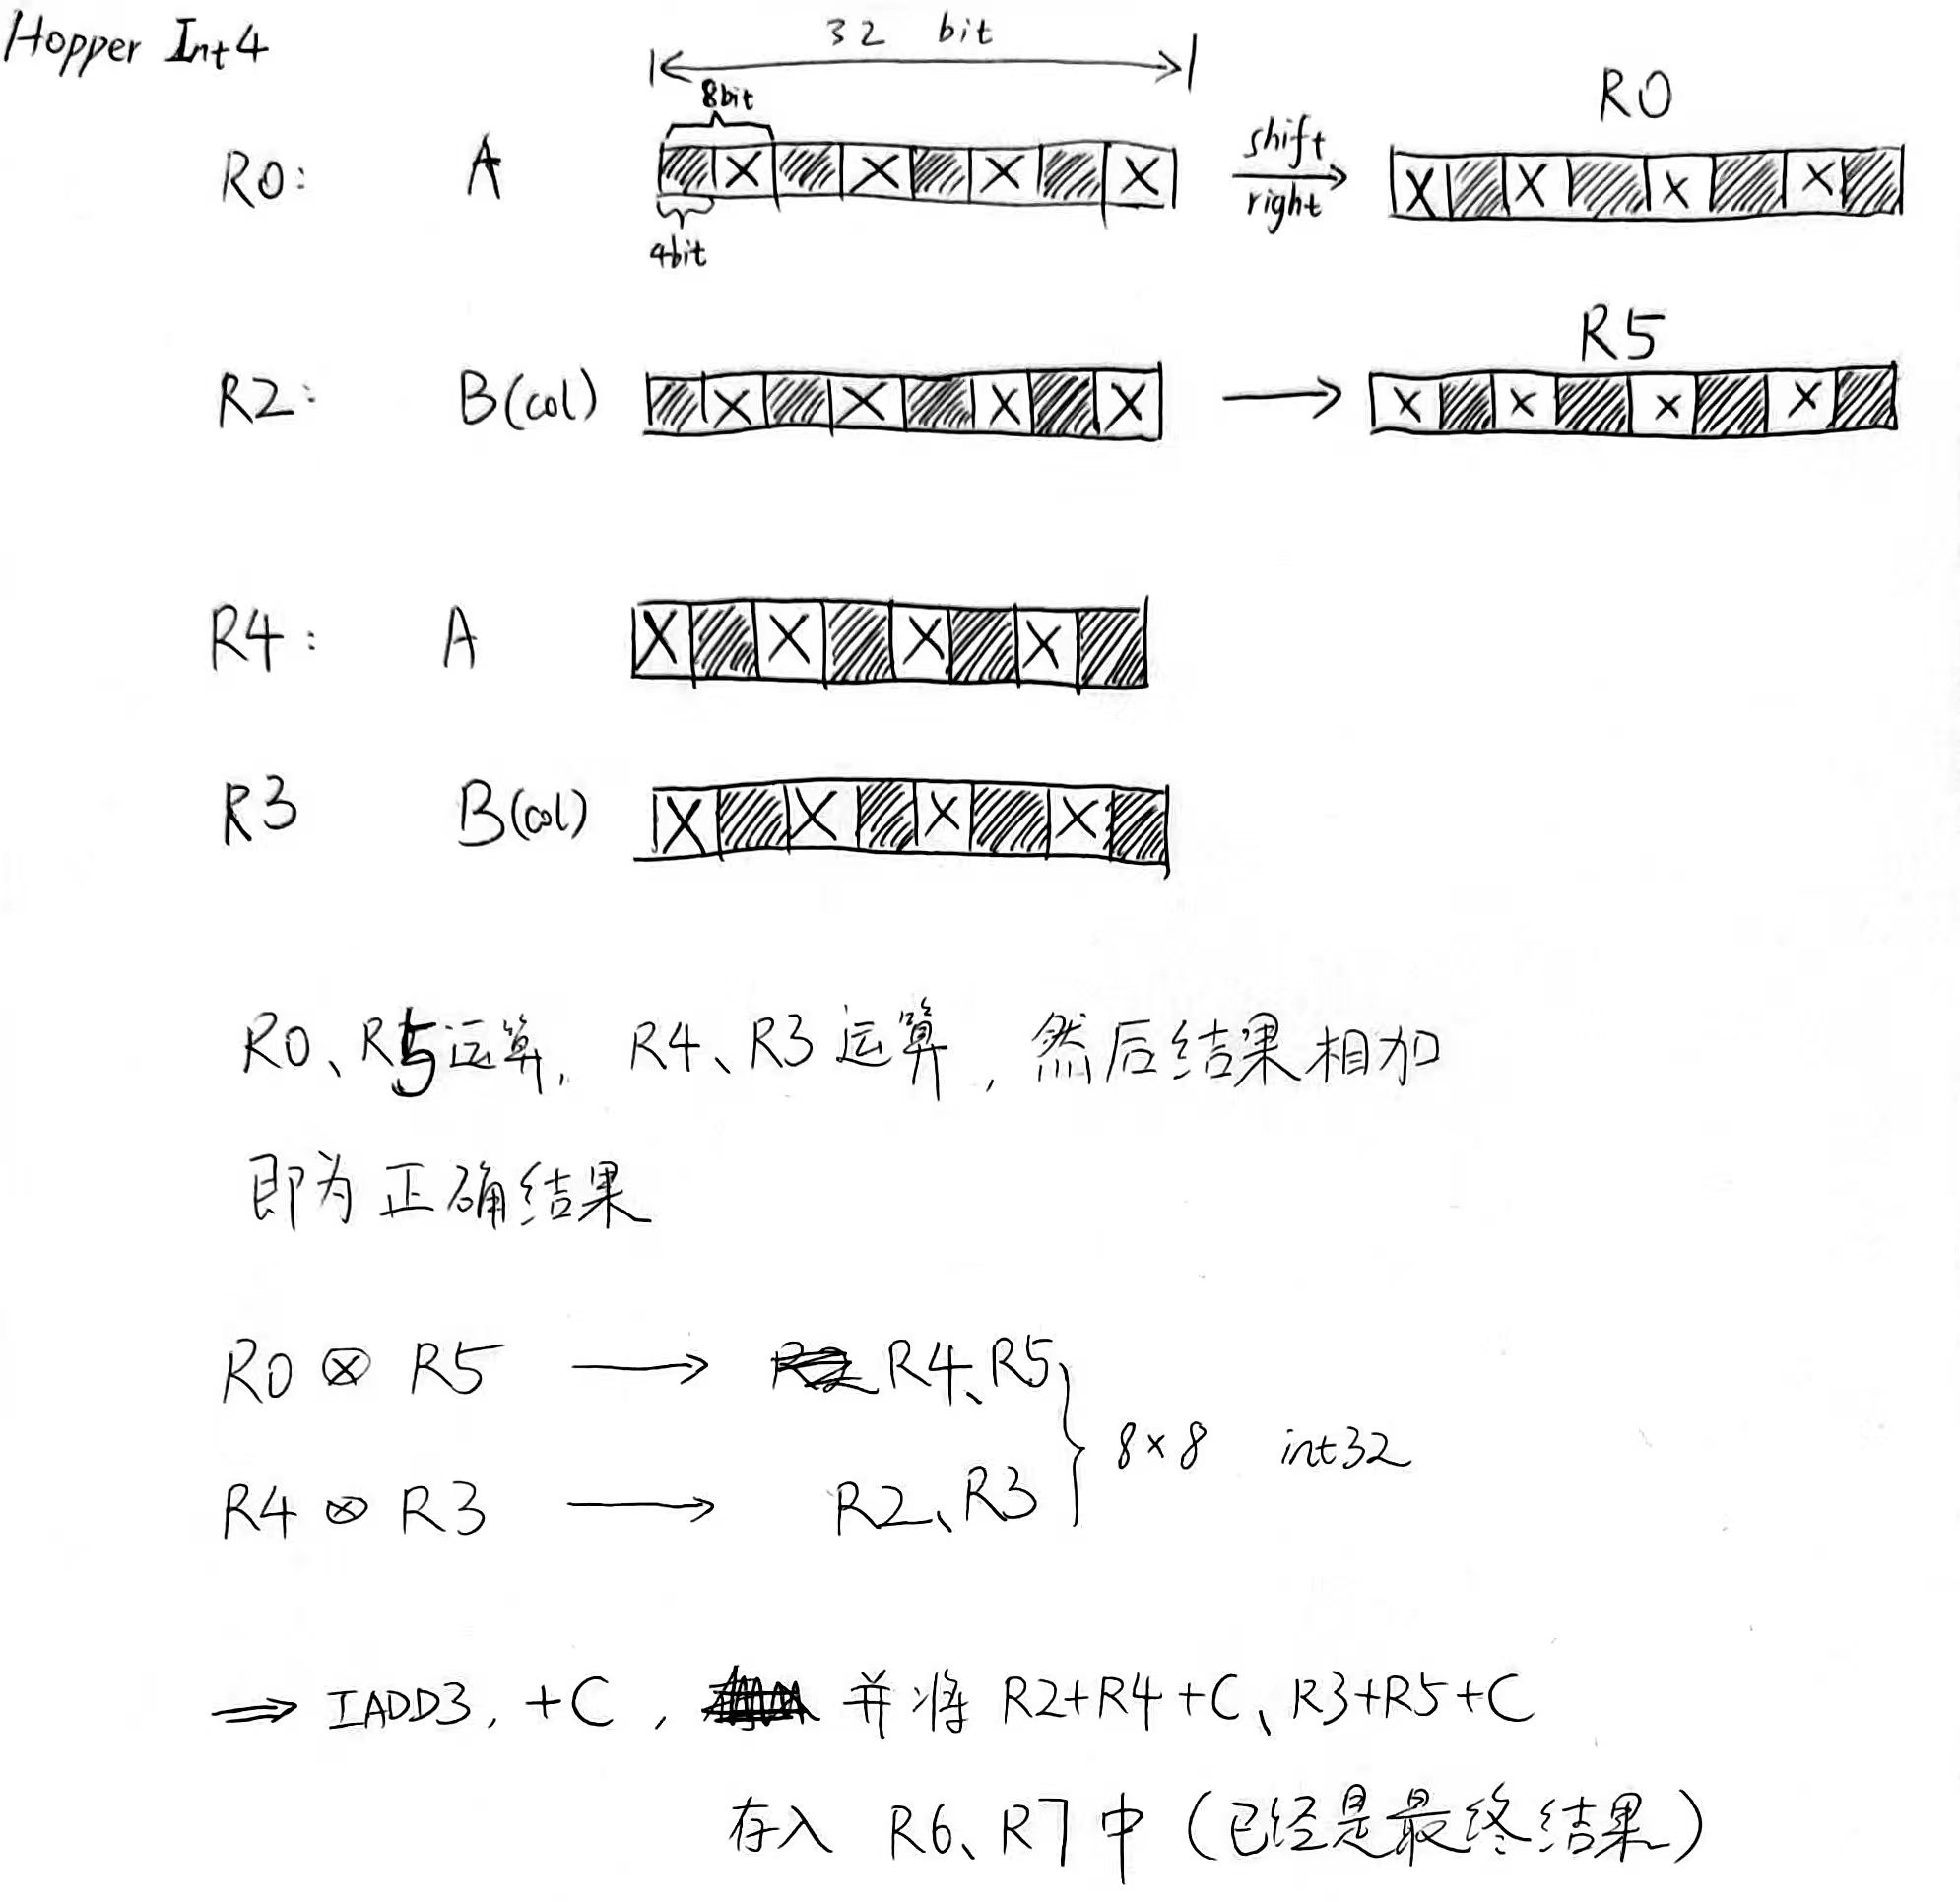 Hopper Int4
32 bit
8bit
R0: A
shift
right
R0
4bit
R2: B(col)
R5
R4: A
R3 B(col)
R0、R5运算, R4、R3运算, 然后结果相加
即为正确结果
R0 ⊗ R5 ⟶ R4、R5
R4 ⊗ R3 ⟶ R2、R3
8×8 int32
⇒ IADD3, +C, 并将 R2+R4+C、R3+R5+C
存入 R6、R7中 (已经是最终结果)